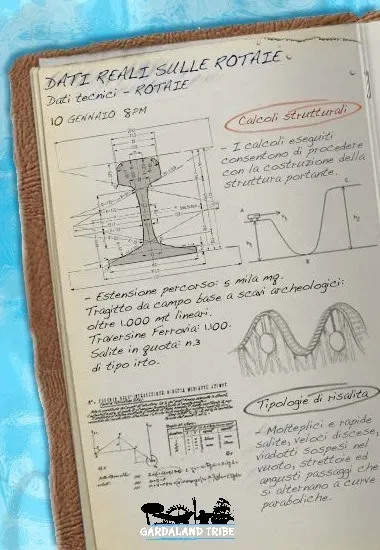 DATI REALI SULLE ROTAIE
Dati tecnici - ROTAIE
10 GENNAIO 8PM
Calcoli strutturali
- I calcoli eseguiti
consentono di procedere
con la costruzione della
struttura portante.
- Estensione percorso: 5 mila mq.
Tragitto da campo base a scavi archeologici:
oltre 1.000 mt lineari.
Traversine Ferrovia: 1.100.
Salite in quota: n.3
di tipo irto.
Tipologie di risalita
- Molteplici e rapide
salite, veloci discese,
viadotti sospesi nel
vuoto, strettoie ed
angusti passaggi che
si alternano a curve
paraboliche.
GARDALAND TRIBE